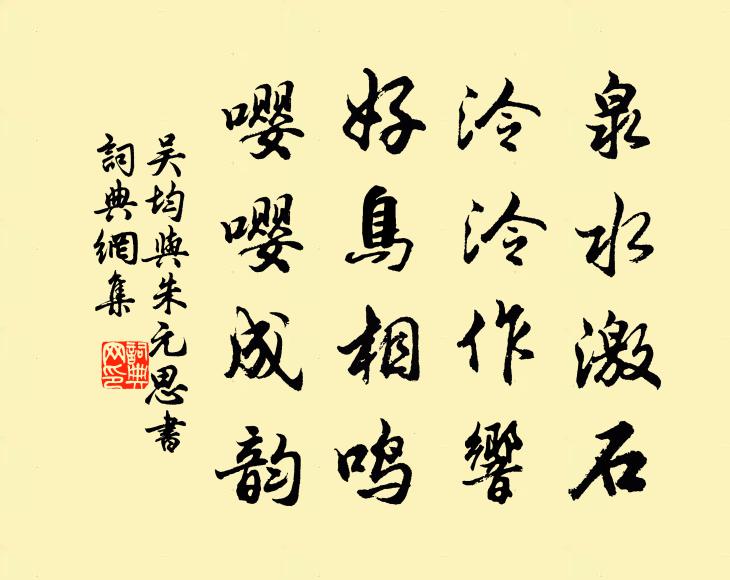 泉水激石
泠泠作響
好鳥相鳴
嚶嚶成韵
吴均與朱元思書
詞典網集
詞典網印